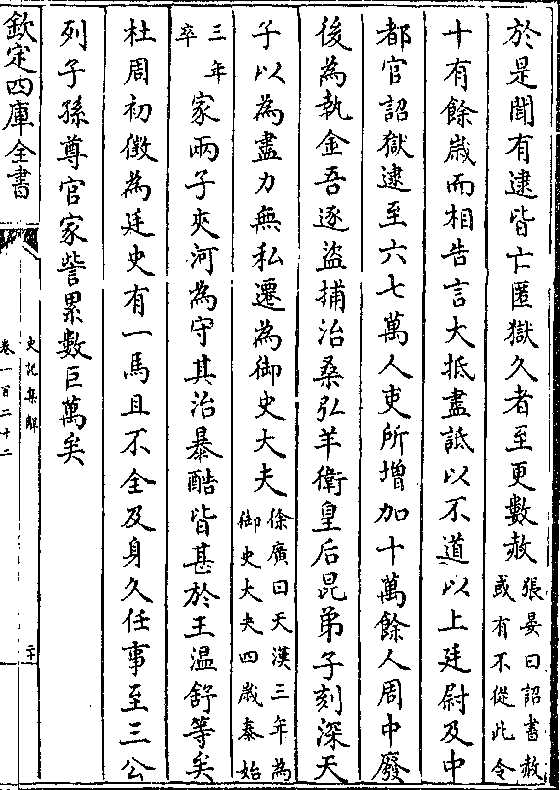 於是聞有逮皆亡匿獄久者至更數赦張晏曰詔書赦或有不從此令
十有餘歲而相告言大抵盡詆以不道以上廷尉及中
都官詔獄逮至六七萬人吏所增加十萬餘人周中廢
後為執金吾逐盜捕治桑弘羊衛皇后昆弟子刻深天
子以為盡力無私遷為御史大夫徐廣曰天漢三年為御史大夫四歲泰始
三年卒家兩子夾河為守其治暴酷皆甚於王溫舒等矣
杜周初徵為廷史有一馬且不全及身久任事至三公
列子孫尊官家訾累數巨萬矣
欽定四庫全書
史記集解
卷一百二十二
二十